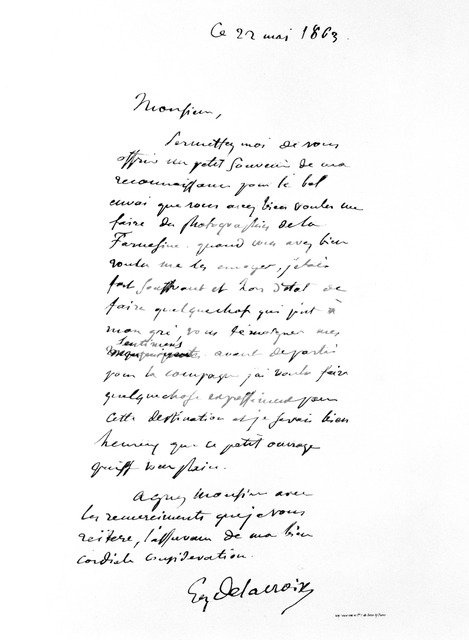 Ce 22 mai 1863.
Monsieur,
Permettez moi de vous
offrir un petit souvenir de ma
reconnaissance pour le bel
envoi que vous avez bien voulu me
faire des photographies de la
Farnesine. quand vous avez bien
voulu me les envoyer, j'étais
fort souffrant et hors d'état de
faire quelque chose qui pût à
mon gré vous témoigner mes
sentimens
avant de partir
pour la campagne j'ai voulu faire
quelque chose expressément pour
cette destination et je serais bien
heureux que ce petit ouvrage
pût vous plaire.
Agréez Monsieur avec
les remerciments que je vous
réitère, l'assurance de ma bien
cordiale considération.
Eug Delacroix